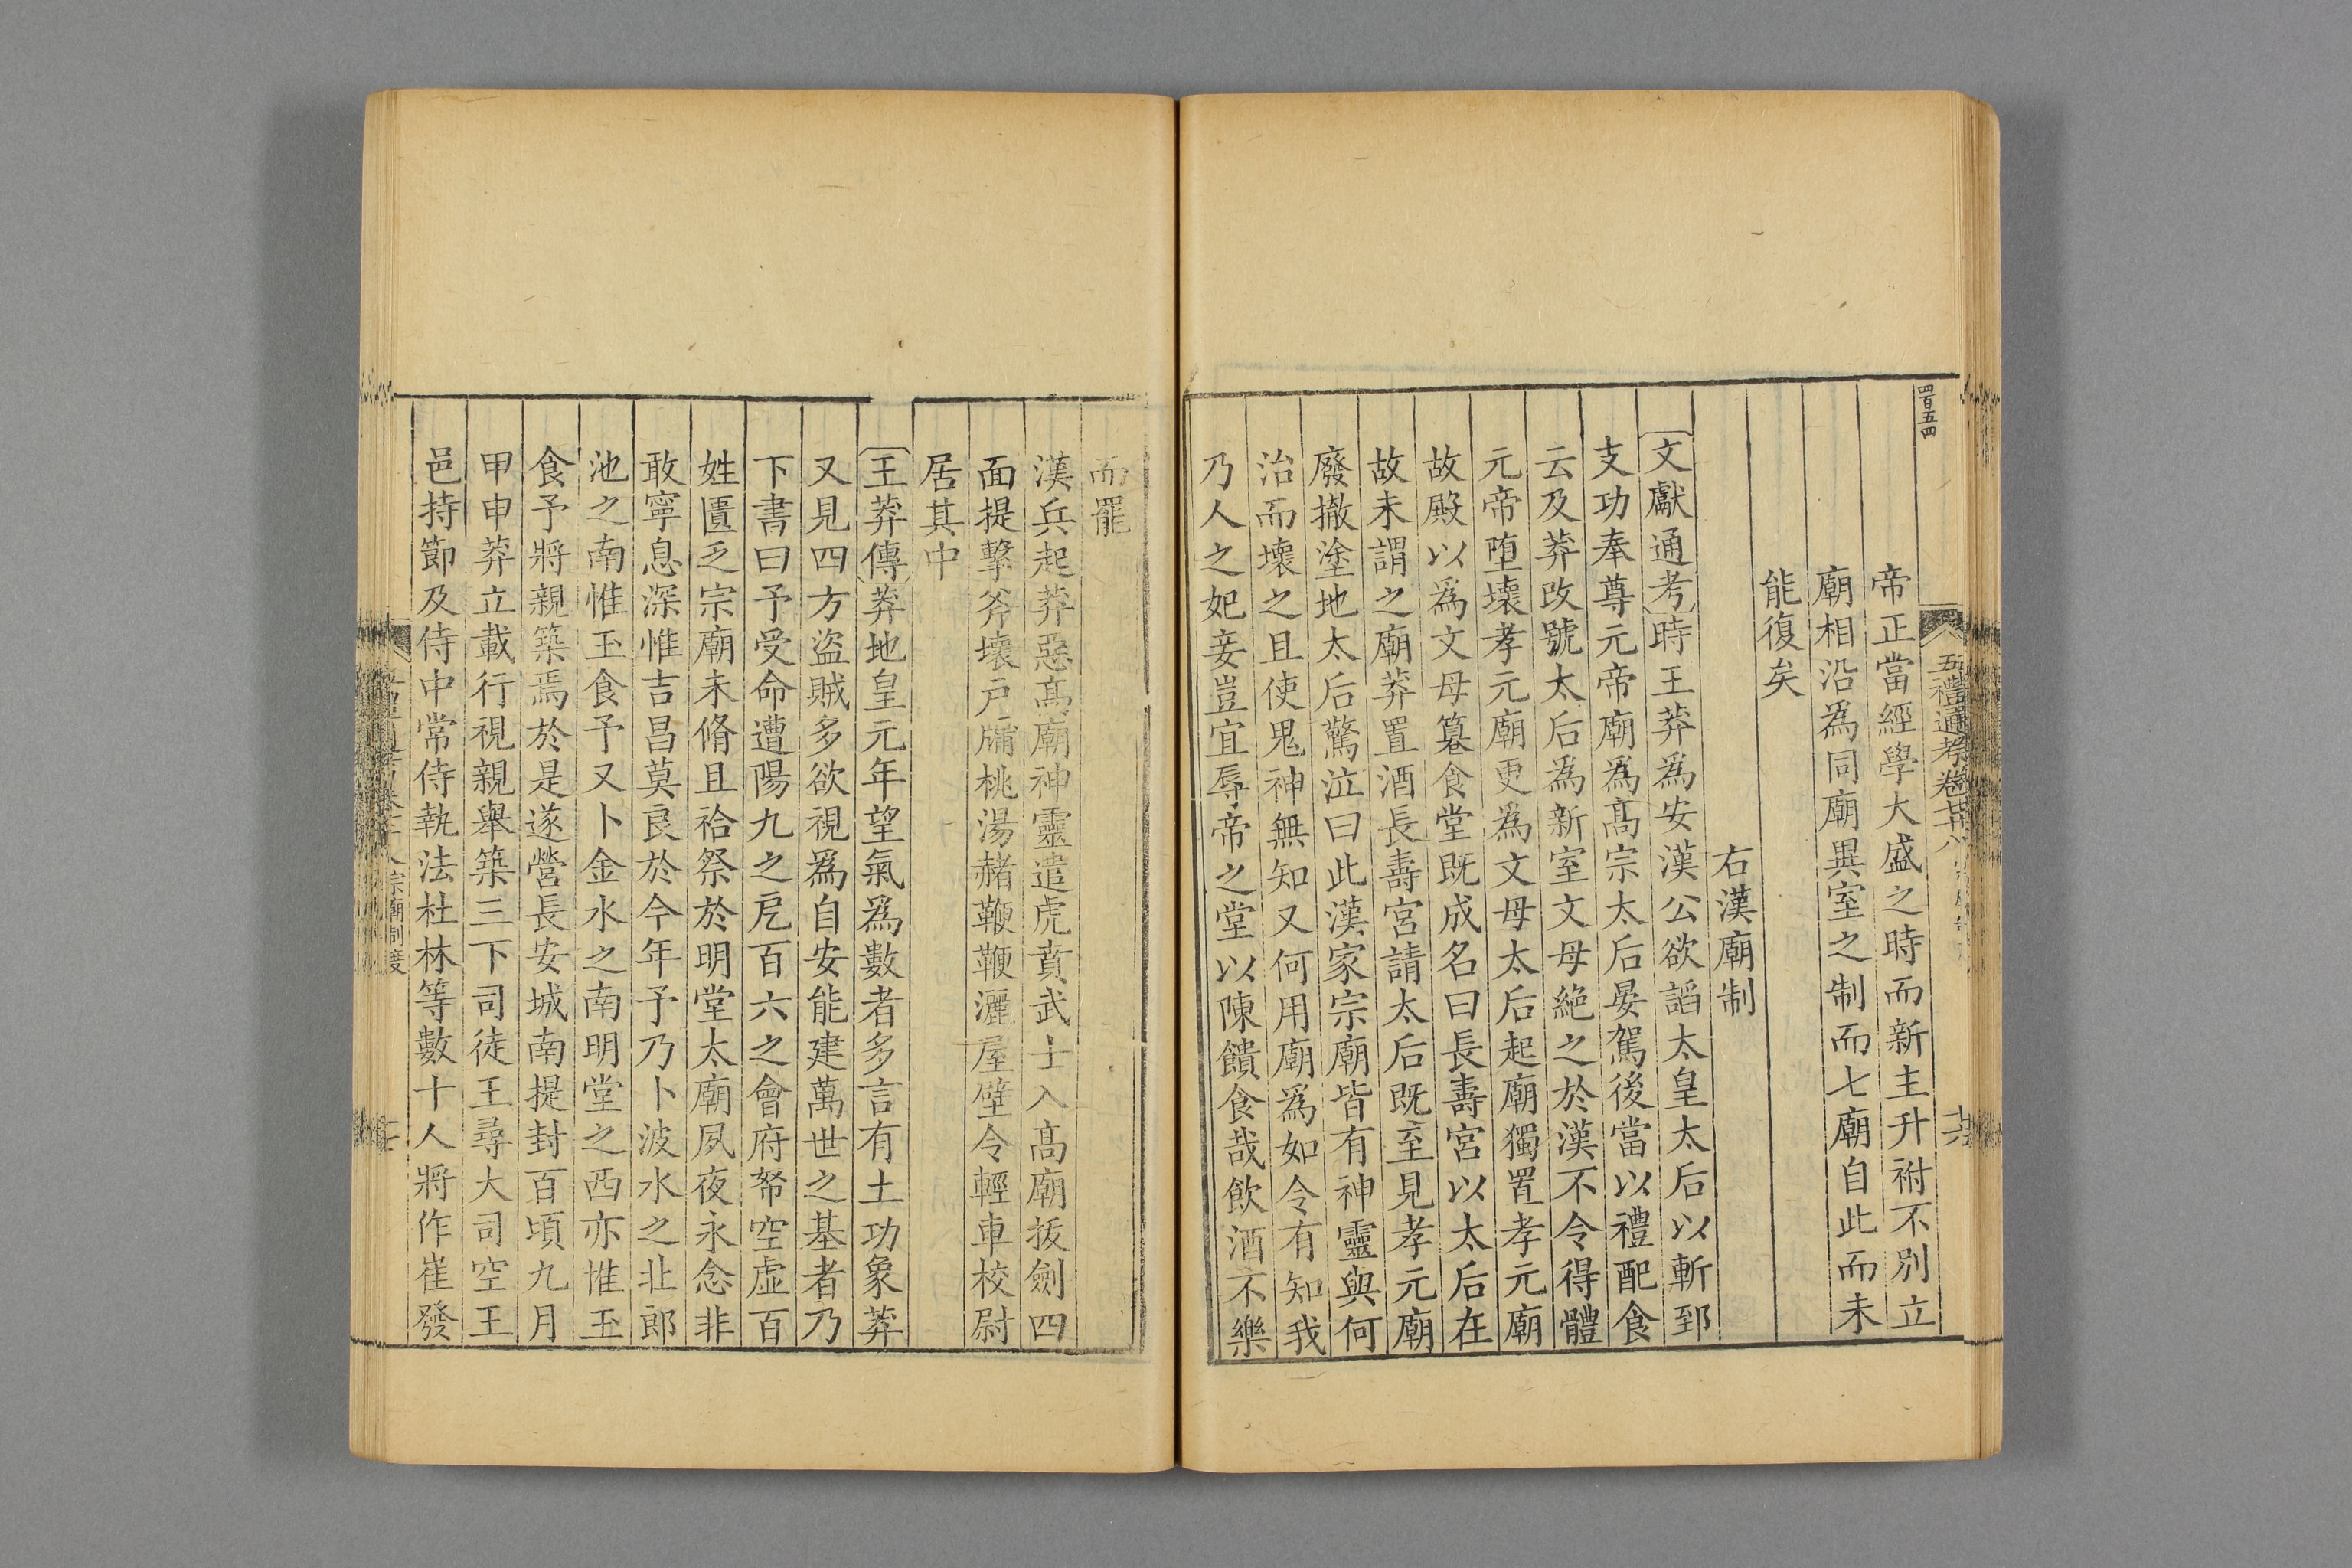 四百五四
五禮通考卷
帝正當經學大盛之時而新主升祔不別立
廟相沿爲同廟異室之制而七廟自此而未
能復矣
右漢廟制
文獻通考時王莽爲安漢公欲諂太皇太后以斬郅
支功奉尊元帝廟爲髙宗太后晏駕後當以禮配食
云及莽改號太后爲新室文母絶之於漢不令得體
元帝墮壞孝元廟更爲文母太后起廟獨置孝元廟
故殿以爲文母簒食堂既成名曰長壽宮以太后在
故未謂之廟莽置酒長壽宮請太后既至見孝元廟
廢撤塗地太后驚泣曰此漢家宗廟皆有神靈與何
治而壞之且使鬼神無知又何用廟爲如令有知我
乃人之妃妾豈宜辱帝之堂以陳饋食哉飲酒不樂
而罷
漢兵起莽惡髙廟神靈遣虎賁武士入髙廟拔劍四
面提擊斧壞戸牖桃湯赭鞭鞭灑屋壁令輕車校尉
居其中
王莽傳莽地皇元年望氣爲數者多言有土功象莽
又見四方盜賊多欲視爲自安能建萬世之基者乃
下書曰予受命遭陽九之戹百六之會府帑空虛百
姓匱乏宗廟未脩且祫祭於明堂太廟夙夜永念非
敢寧息深惟吉昌莫良於今年予乃卜波水之北郎
池之南惟玉食予又卜金水之南明堂之西亦惟玉
食予將親築焉於是遂營長安城南提封百頃九月
甲申莽立載行視親舉築三下司徒王尋大司空王
邑持節及侍中常侍執法杜林等數十人將作崔發
宗廟制度